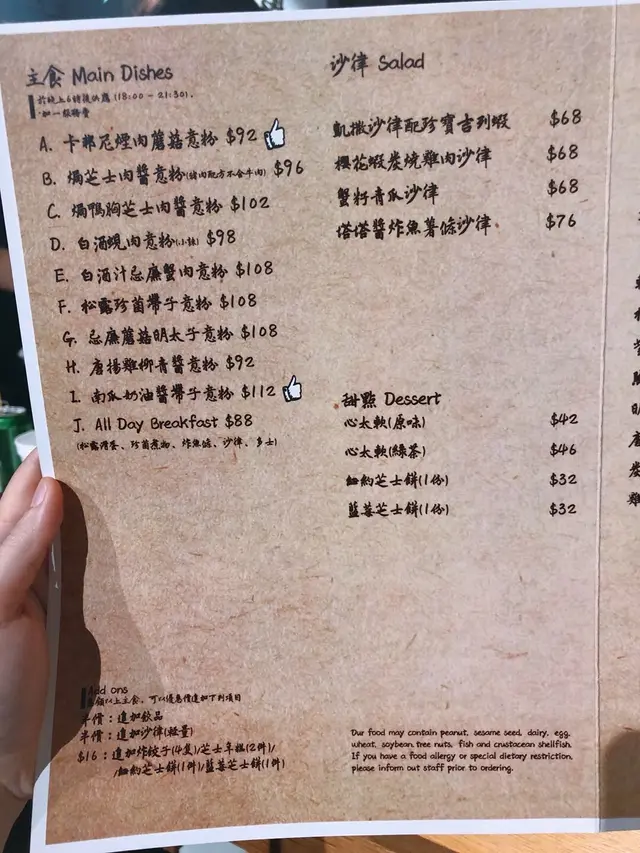 主食 Main Dishes
於晚上6時後供應 (18:00 - 21:30)，
加一服務費
A. 卡邦尼煙肉蘑菇意粉 $92
B. 焗芝士肉醬意粉(豬肉配方不含牛肉) $96
C. 焗鴨胸芝士肉醬意粉 $102
D. 白酒蜆肉意粉(小辣) $98
E. 白酒汁忌廉蟹肉意粉 $108
F. 松露珍菌帶子意粉 $108
G. 忌廉蘑菇明太子意粉 $108
H. 唐揚雞柳青醬意粉 $92
I. 南瓜奶油醬帶子意粉 $112
J. All Day Breakfast $88
(松露滑蛋、珍菌煮物、炸魚條、沙律、多士)
Add ons
以上主食、可以優惠價追加下列項目
半價：追加飲品
半價：追加沙律(輕量)
$16：追加炸餃子(4隻)/芝士年糕(2件)/
/紐約芝士餅(1件)/藍莓芝士餅(1件)
沙律 Salad
凱撒沙律配珍寶吉列蝦 $68
櫻花蝦炭燒雞肉沙律 $68
蟹籽青瓜沙律 $68
塔塔醬炸魚薯條沙律 $76
甜點 Dessert
心太軟(原味) $42
心太軟(綠茶) $46
紐約芝士餅(1份) $32
藍莓芝士餅(1份) $32
Our food may contain peanut, sesame seed, dairy, egg,
wheat, soybean, tree nuts, fish and crustacean shellfish.
If you have a food allergy or special dietary restriction,
please inform out staff prior to ordering.